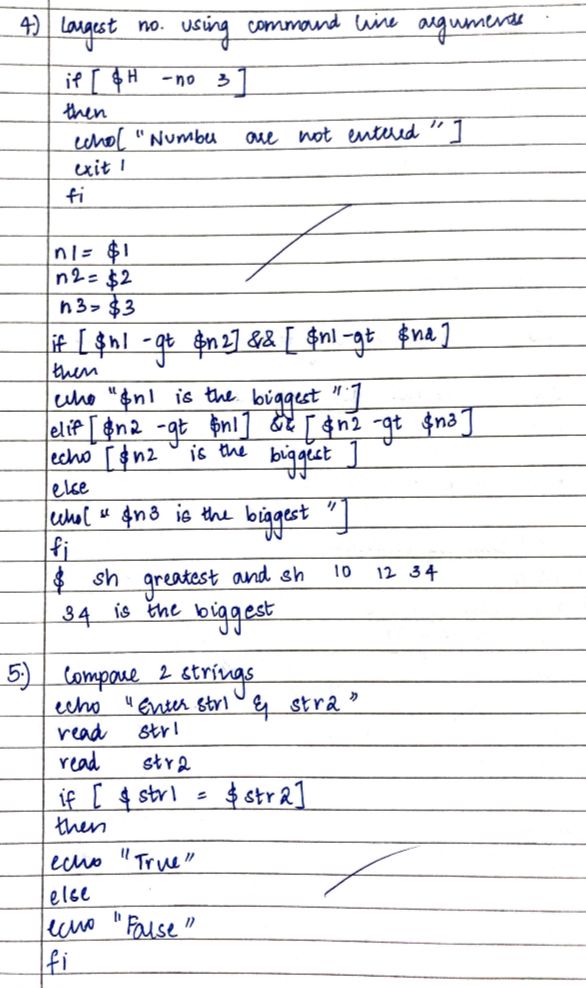 4) Largest no. using command line arguments.
if [ $H -no 3 ]
then
echo[ "Number are not entered" ]
exit 1
fi
n1= $1
n2= $2
n3= $3
if [ $n1 -gt $n2] && [ $n1 -gt $n2 ]
then
echo "$n1 is the biggest" ]
elif [ $n2 -gt $n1] && [ $n2 -gt $n3 ]
echo [ $n2 is the biggest ]
else
echo[ " $n3 is the biggest " ]
fi
$ sh greatest and sh 10 12 34
34 is the biggest
5.) Compare 2 strings
echo "Enter str1 & str2"
read str1
read str2
if [ $ str1 = $ str2]
then
echo "True"
else
echo "False"
fi